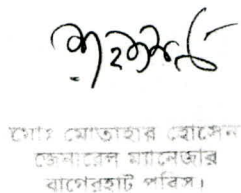 মোঃ মোতাহার হোসেন
জেনারেল ম্যানেজার
বাগেরহাট পবিস।